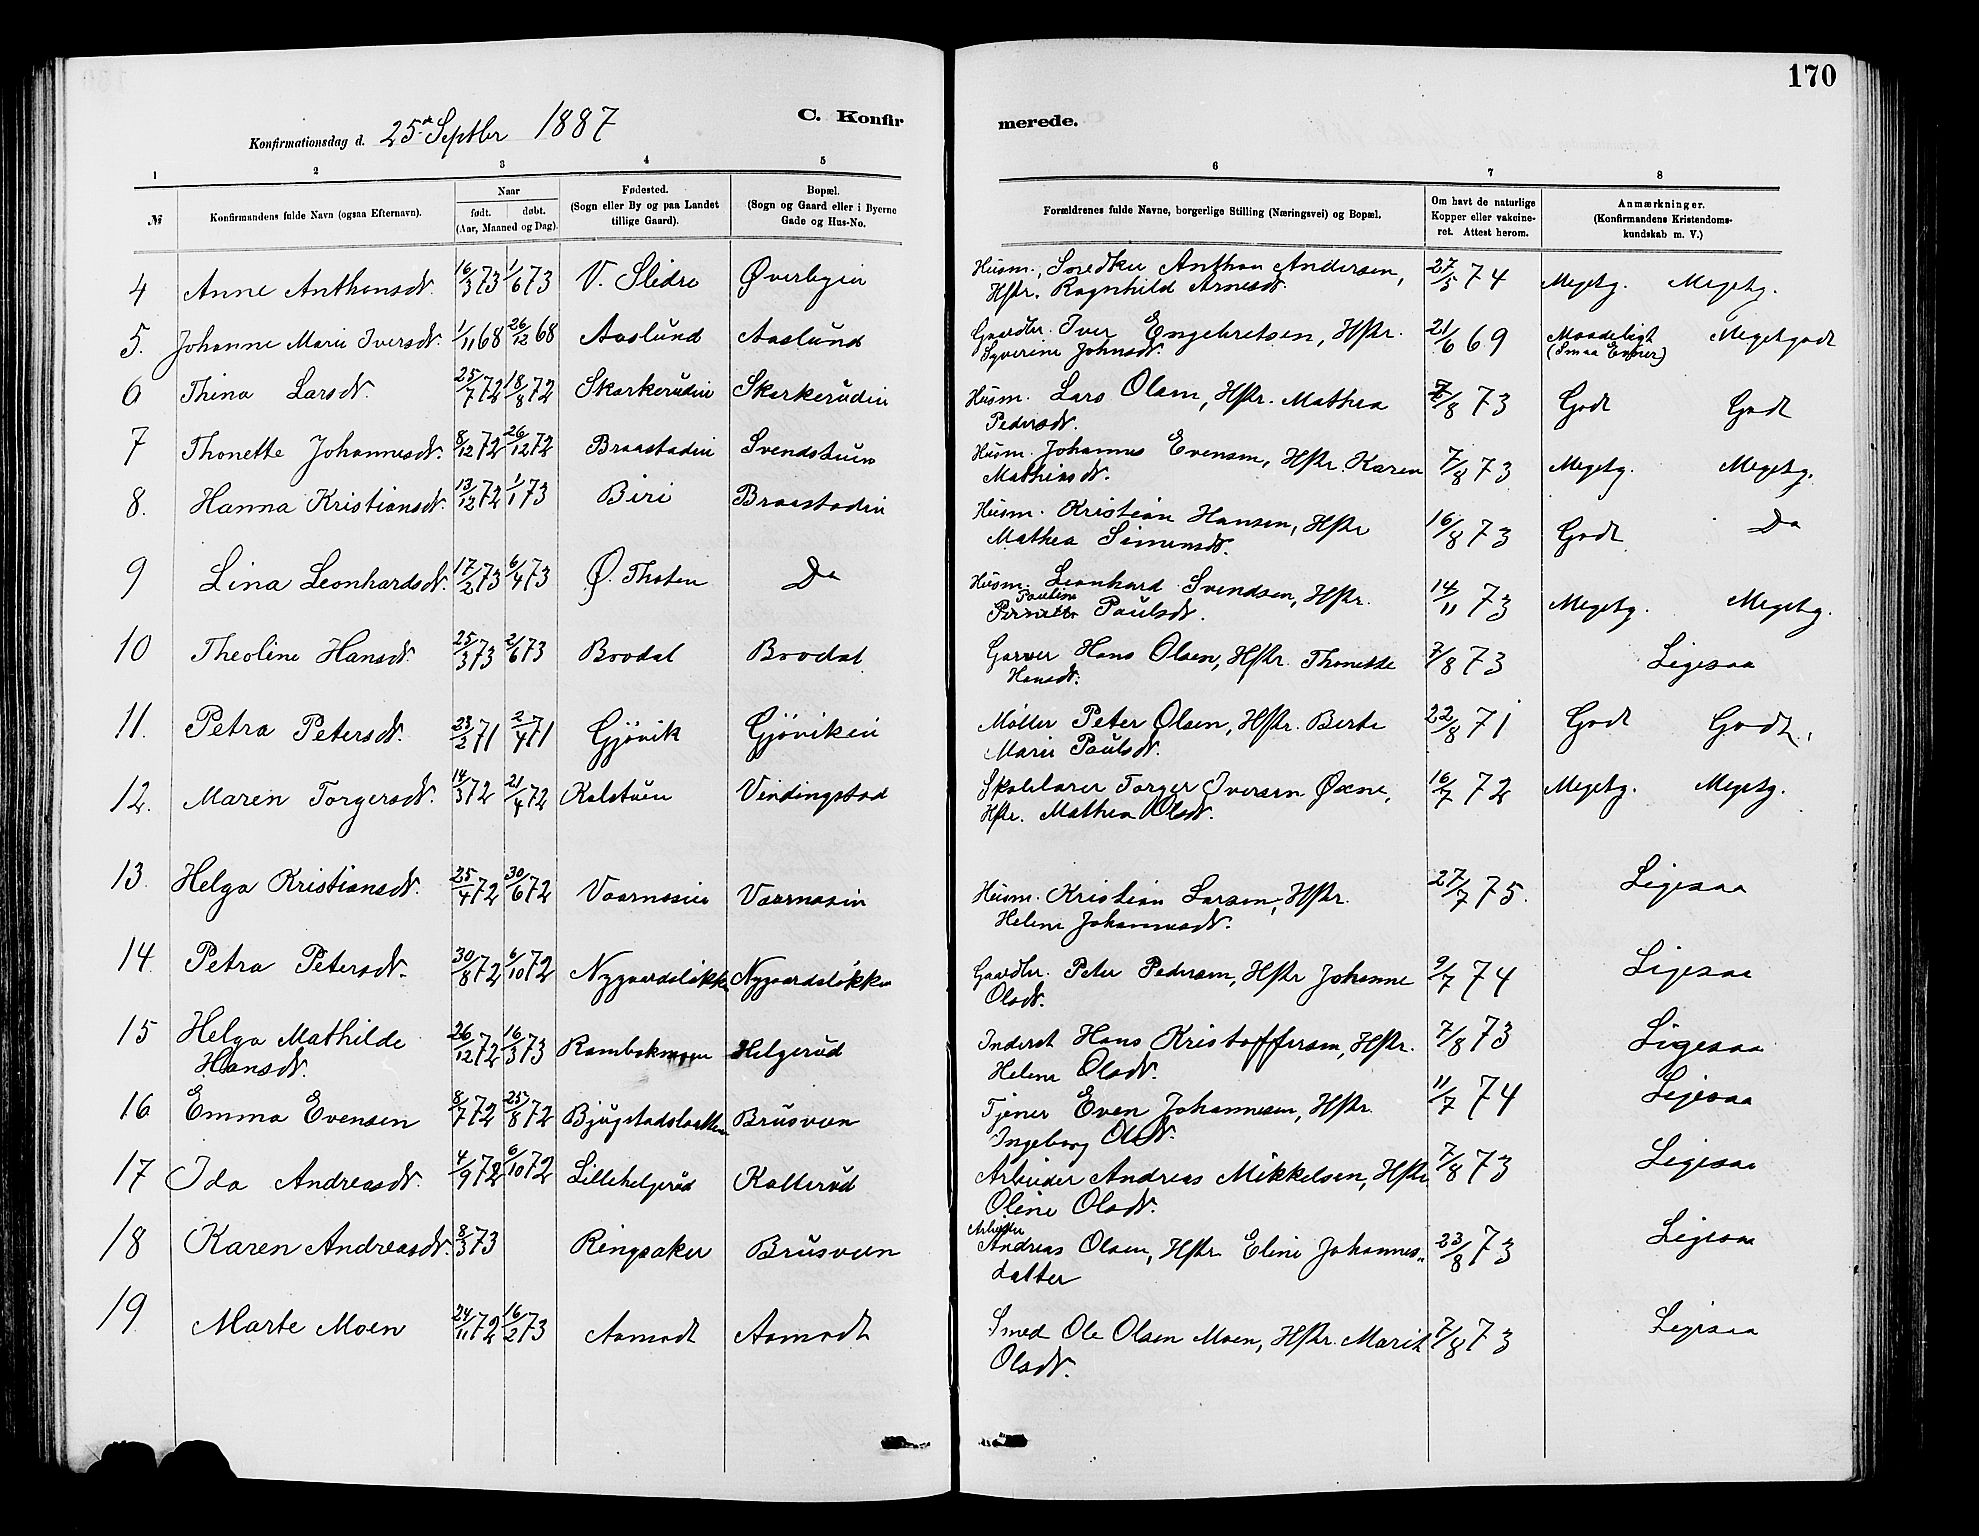 170
Konfirmationsdag d. 25de Septbr 1887 C. Konfir merede.
1 2 3 4 5 6 7 8
№ Konfirmandens fulde Navn (ogsaa Efternavn). Naar født. døbt. (Aar, Maaned og Dag). Fødested. (Sogn eller By og paa Landet tillige Gaard). Bopæl. (Sogn og Gaard eller i Byerne Gade og Hus-No. Forældrenes fulde Navne, borgerlige Stilling (Næringsvei) og Bopæl. Om havt de naturlige Kopper eller vakcineret. Attest herom. Anmærkninger. (Konfirmandens Kristendomskundskab m. V.)
4 Anne Anthonsdt. 16/3 73 1/6 73 V. Slidre Øverbyen Husm., Snedker Anthon Andersen, 27/5 74 Megetg. Megetg.
Hstr. Ragnhild Arnesdt.
5. Johanne Marie Iversdt. 1/11 68 26/12 68 Aaslund Aaslund Gaardbr. Iver Engebretsen, Hstr. 21/6 69 Maadeligt Megetgodt
Syverine Johnsdt. (Smaa Evner)
6 Thina Larsdt. 25/7 72 18/8 72 Skarkerudin Skarkerudin Husm. Lars Olsen, Hstr. Mathea 7/8 73 Godt Godt
Pedersdt.
7 Thonette Johannesdt. 8/12 72 26/12 72 Braastadin Svendstuen Husm. Johannes Evensen, Hstr. Karen 7/8 73 Megetg. Megetg.
Mathiasdt.
8. Hanna Kristiansdt. 13/12 72 1/1 73 Biri Braastadin Husm. Kristian Hansen, Hstr 16/8 73 Godt Do
Mathea Simensdt.
9 Lina Leonhardsdt. 17/2 73 6/4 73 Ø. Thoten Do Husm. Leonhard Svendsen, Hstr. 14/11 73 Megetg. Megetg.
Pauline
Paulsdt.
10 Theoline Hansdt. 25/3 73 2/6 73 Brodal Brodal Garver Hans Olsen, Hstr. Thonette 7/8 73 Ligesaa
Hansdt.
11. Petra Petersdt. 23/2 71 2/4 71 Gjövik Gjöviken Møller Peter Olsen, Hstr. Berte 22/8 71 Godt Godt.
Marie Paulsdt.
12. Maren Torgersdt. 14/3 72 21/4 72 Kalstuen Vindingstad Skolelærer Torger Iversen Øxne, 16/7 72 Megetg. Megetg.
Hstr. Mathea Olsdt.
13. Helga Kristiansdt. 25/4 72 30/6 72 Vaarnæsin Vaarnæsin Husm. Kristian Larsen, Hstr. 27/7 75. Ligesaa
Helene Johannesdt.
14. Petra Petersdt. 30/8 72 6/10 72 Nygaardsløkken Nygaardsløkken Gaardbr. Peter Pedersen, Hstr Johanne 9/7 74 Ligesaa
Olsdt.
15 Helga Mathilde 26/12 72 16/3 73 Rambekmoen Helgerud Inderst Hans Kristoffersen, Hstr. 7/8 73 Ligesaa
Hansdt. Helene Olsdt.
16 Emma Evensen 8/7 72 25/8 72 Bjugstadslætten Brusveen Tjener Even Johannesen, Hstr. 11/7 74 Ligesaa
Ingeborg Olsdt.
17 Ida Andreasdt. 4/9 72 6/10 72 Lillehelgerud Kalterud Arbeider Andreas Mikkelsen, Hstr. 7/8 73 Ligesaa
Oline Olsdt.
18 Karen Andreasdt. 8/3 73 Ringsaker Brusveen Arbeider Andreas Olsen, Hstr. Eline Johannes- 23/8 73 Ligesaa
datter
19 Marte Moen 24/11 72 16/2 73 Aamodt Aamodt Smed Ole Olsen Moen, Hstr. Marit 7/8 73 Ligesaa
Olsdt.